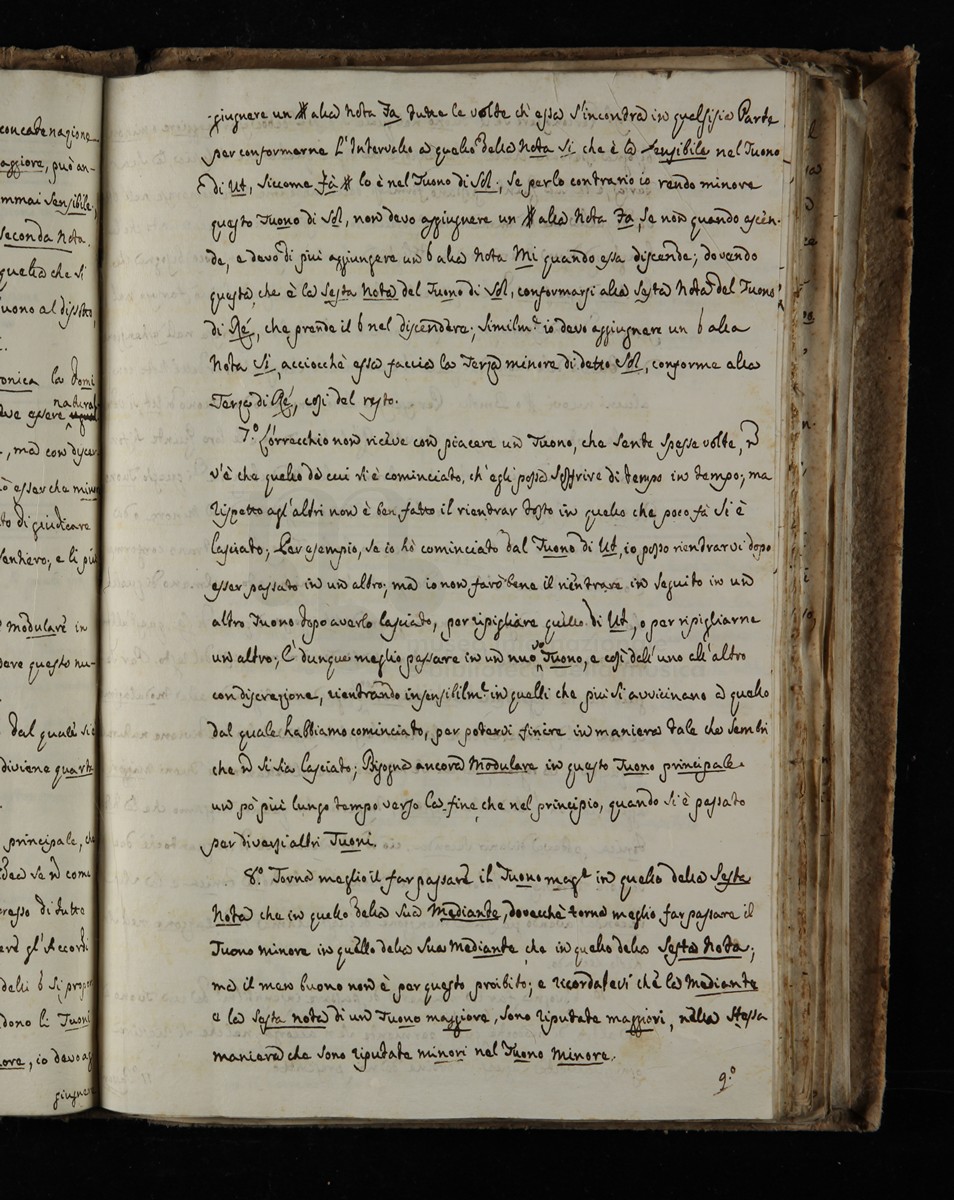 concatenazione
aggiore, può an-
mmai sensibile,
seconda nota.
quella che si
uono al disotto,
onica la domi
naturale
ve essere
, ma con discre
ò esser che mino
to di giudicare
sentiero, e li più
Modulare in
vere questo nu-
dal quale si è
diviene quarta
principale, che
presso di tutta
ere gl'Accordi
delli b si propor
dono li Tuoni
ore, io devo ag
giugnere
giugnere un ※ alla nota Fa tutte le volte ch'essa s'incontra in qualsisia Parte
per conformarne l'Intervallo a quello della nota si che è la sensibile nel Tuono
di Ut, siccome Fà ※ lo è nel Tuono di Sol; se per lo contrario io rendo minore
questo Tuono di Sol, non devo aggiugnere un ※ alla nota Fa, se non quando ascen-
de, e devo di più aggiungere un b alla nota Mi quando essa discende; dovendo
questa, che è la Sesta Nota del Tuono di Sol, conformarsi alla Sesta Nota del Tuono
di Ré, che prende il b nel discendere; similm.e io devo aggiugnere un b alla
nota Si, acciocchè essa faccia la Terza minore di detto Sol, conforme alla
Terza di Ré, così del resto.
7.º L'orracchio non riceve con piacere un Tuono, che sente spesse volte, ñ
v'è che quello da cui si è cominciato, ch'egli possa soffrire di tempo in tempo; ma
rispetto agl'altri non è ben fatto il rientrar tosto in quello che poco fà si è
lasciato; Per esempio, se io hò cominciato dal Tuono di Ut, io posso rientrarvi dopo
esser passato in un altro; ma io non farò bene il rientrare in seguito in un
altro Tuono dopo averlo lasciato, per ripigliare quello di Ut, o per ripigliarne
un altro; È dunque meglio passare in un nuovo Tuono, e così dell'uno all'altro
con discrezione, rientrando insensibilm.e in quelli che più si avvicinano a quello
dal quale habbiamo cominciato, per potervi finire in maniera tale che sembri
che ñ si sia lasciato; Bisogna ancora Modulare in questo Tuono principale
un pò più lungo tempo verso la fine che nel principio, quando si è passato
per diversi altri Tuoni.
8.º Torna meglio il far passare il Tuono mag.e in quello della Sesta
Nota che in quello della sua Mediante, dovecchè torna meglio far passare il
Tuono minore in quello della sua Mediante che in quello della Sesta Nota;
ma il men buono non è per questo proibito; e ricordatevi che la Mediante
e la Sesta nota di un Tuono maggiore, sono riputate maggiori, nella stessa
maniera che sono riputate minori nel Tuono Minore.
9.º